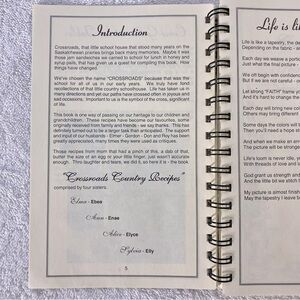 Introduction
Crossroads, that little school house that stood many years on the
Saskatchewan prairies brings back many memories. Maybe it was
those jam sandwiches we carried to school for lunch in honey and
syrup pails, that has given us a quest for compiling this book. How
things have changed.
We've chosen the name "CROSSROADS" because that was the
school for all of us in our early years. We truly have fond
recollections of that little country schoolhouse. Life has taken us in
many directions and yet our paths have crossed often in joyous and
sad occasions. Important to us is the symbol of the cross, significant
of life.
This book is one way of passing on our heritage to our children and
grandchildren. These recipes have become our favourites, some
originally received from family and friends - we say thanks. This has
definitely turned out to be a larger task than anticipated. The support
and input of our husbands - Elmer - Gordon - Don and Roy has been
greatly appreciated, many times they were used as critiques.
Those recipes from mom that had a pinch of this, a dab of that,
butter the size of an egg or your little finger, just wasn't accurate
enough. Thru laughter and tears, we did it, so here it is - the book.
"Crossroads Country Recipes"
comprised by four sisters.
Elma - Ebea
Ann - Enae
Alice - Elyce
Sylvia - Elly
5
Life is li
Life is like a tapestry, the de
Depending on the fabric -
Each day we weave a porti
just what the total picture wi
We oft begin with confiden
But if we are not careful -
Let strong "FAITH" frame yo
the picture will be stronger
Each day will bring new co
Others may bring differen
Some days the colors will b
Then you'll need a hope s
And when we make an err
The picture will be strength
Life's loom is never idle, y
with threads of love and
God grant us strength and
And the little bit we stitch
My picture is almost finish
May the tapestry I leave b